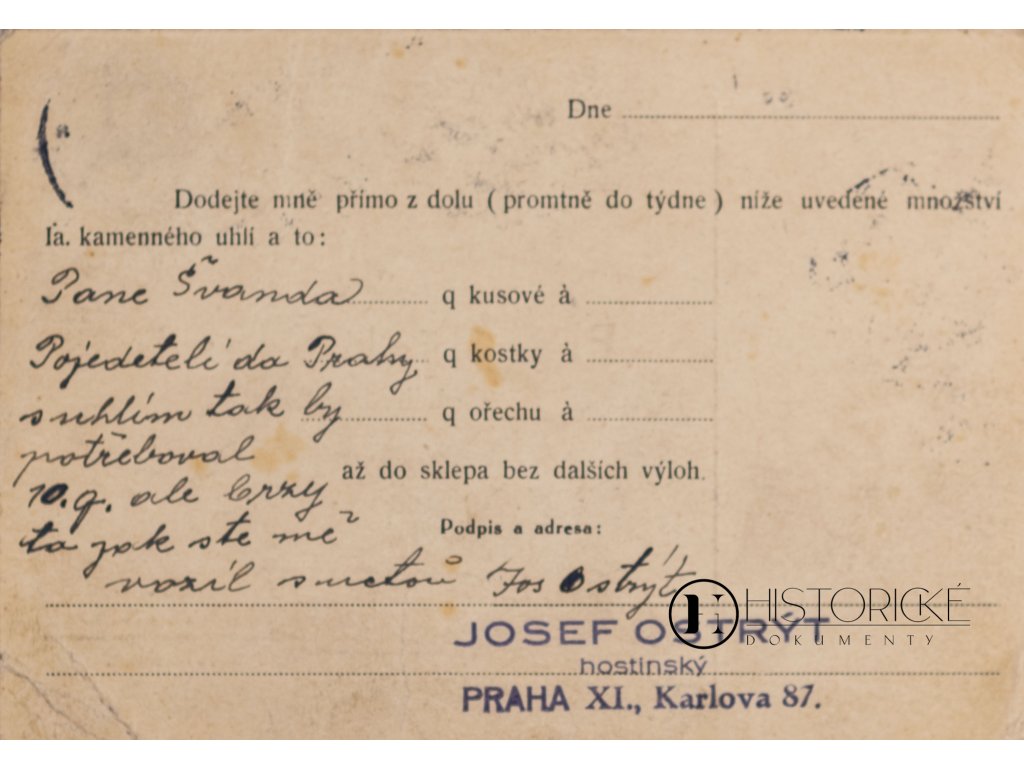 Dne
Dodejte mně přímo z dolu (promtně do týdne) níže uvedené množství
Ia. kamenného uhlí a to:
Pane Švanda q kusové à
Pojedeteli do Prahy q kostky à
s uhlím tak by q ořechu à
potřeboval
až do sklepa bez dalších výloh.
10.q. ale brzy
Podpis a adresa:
to jak ste mě
vozíl Jos Ostrýt
HISTORICKÉ
DOKUMENTY
JOSEF OSTRÝT
hostinský
PRAHA XI., Karlova 87.